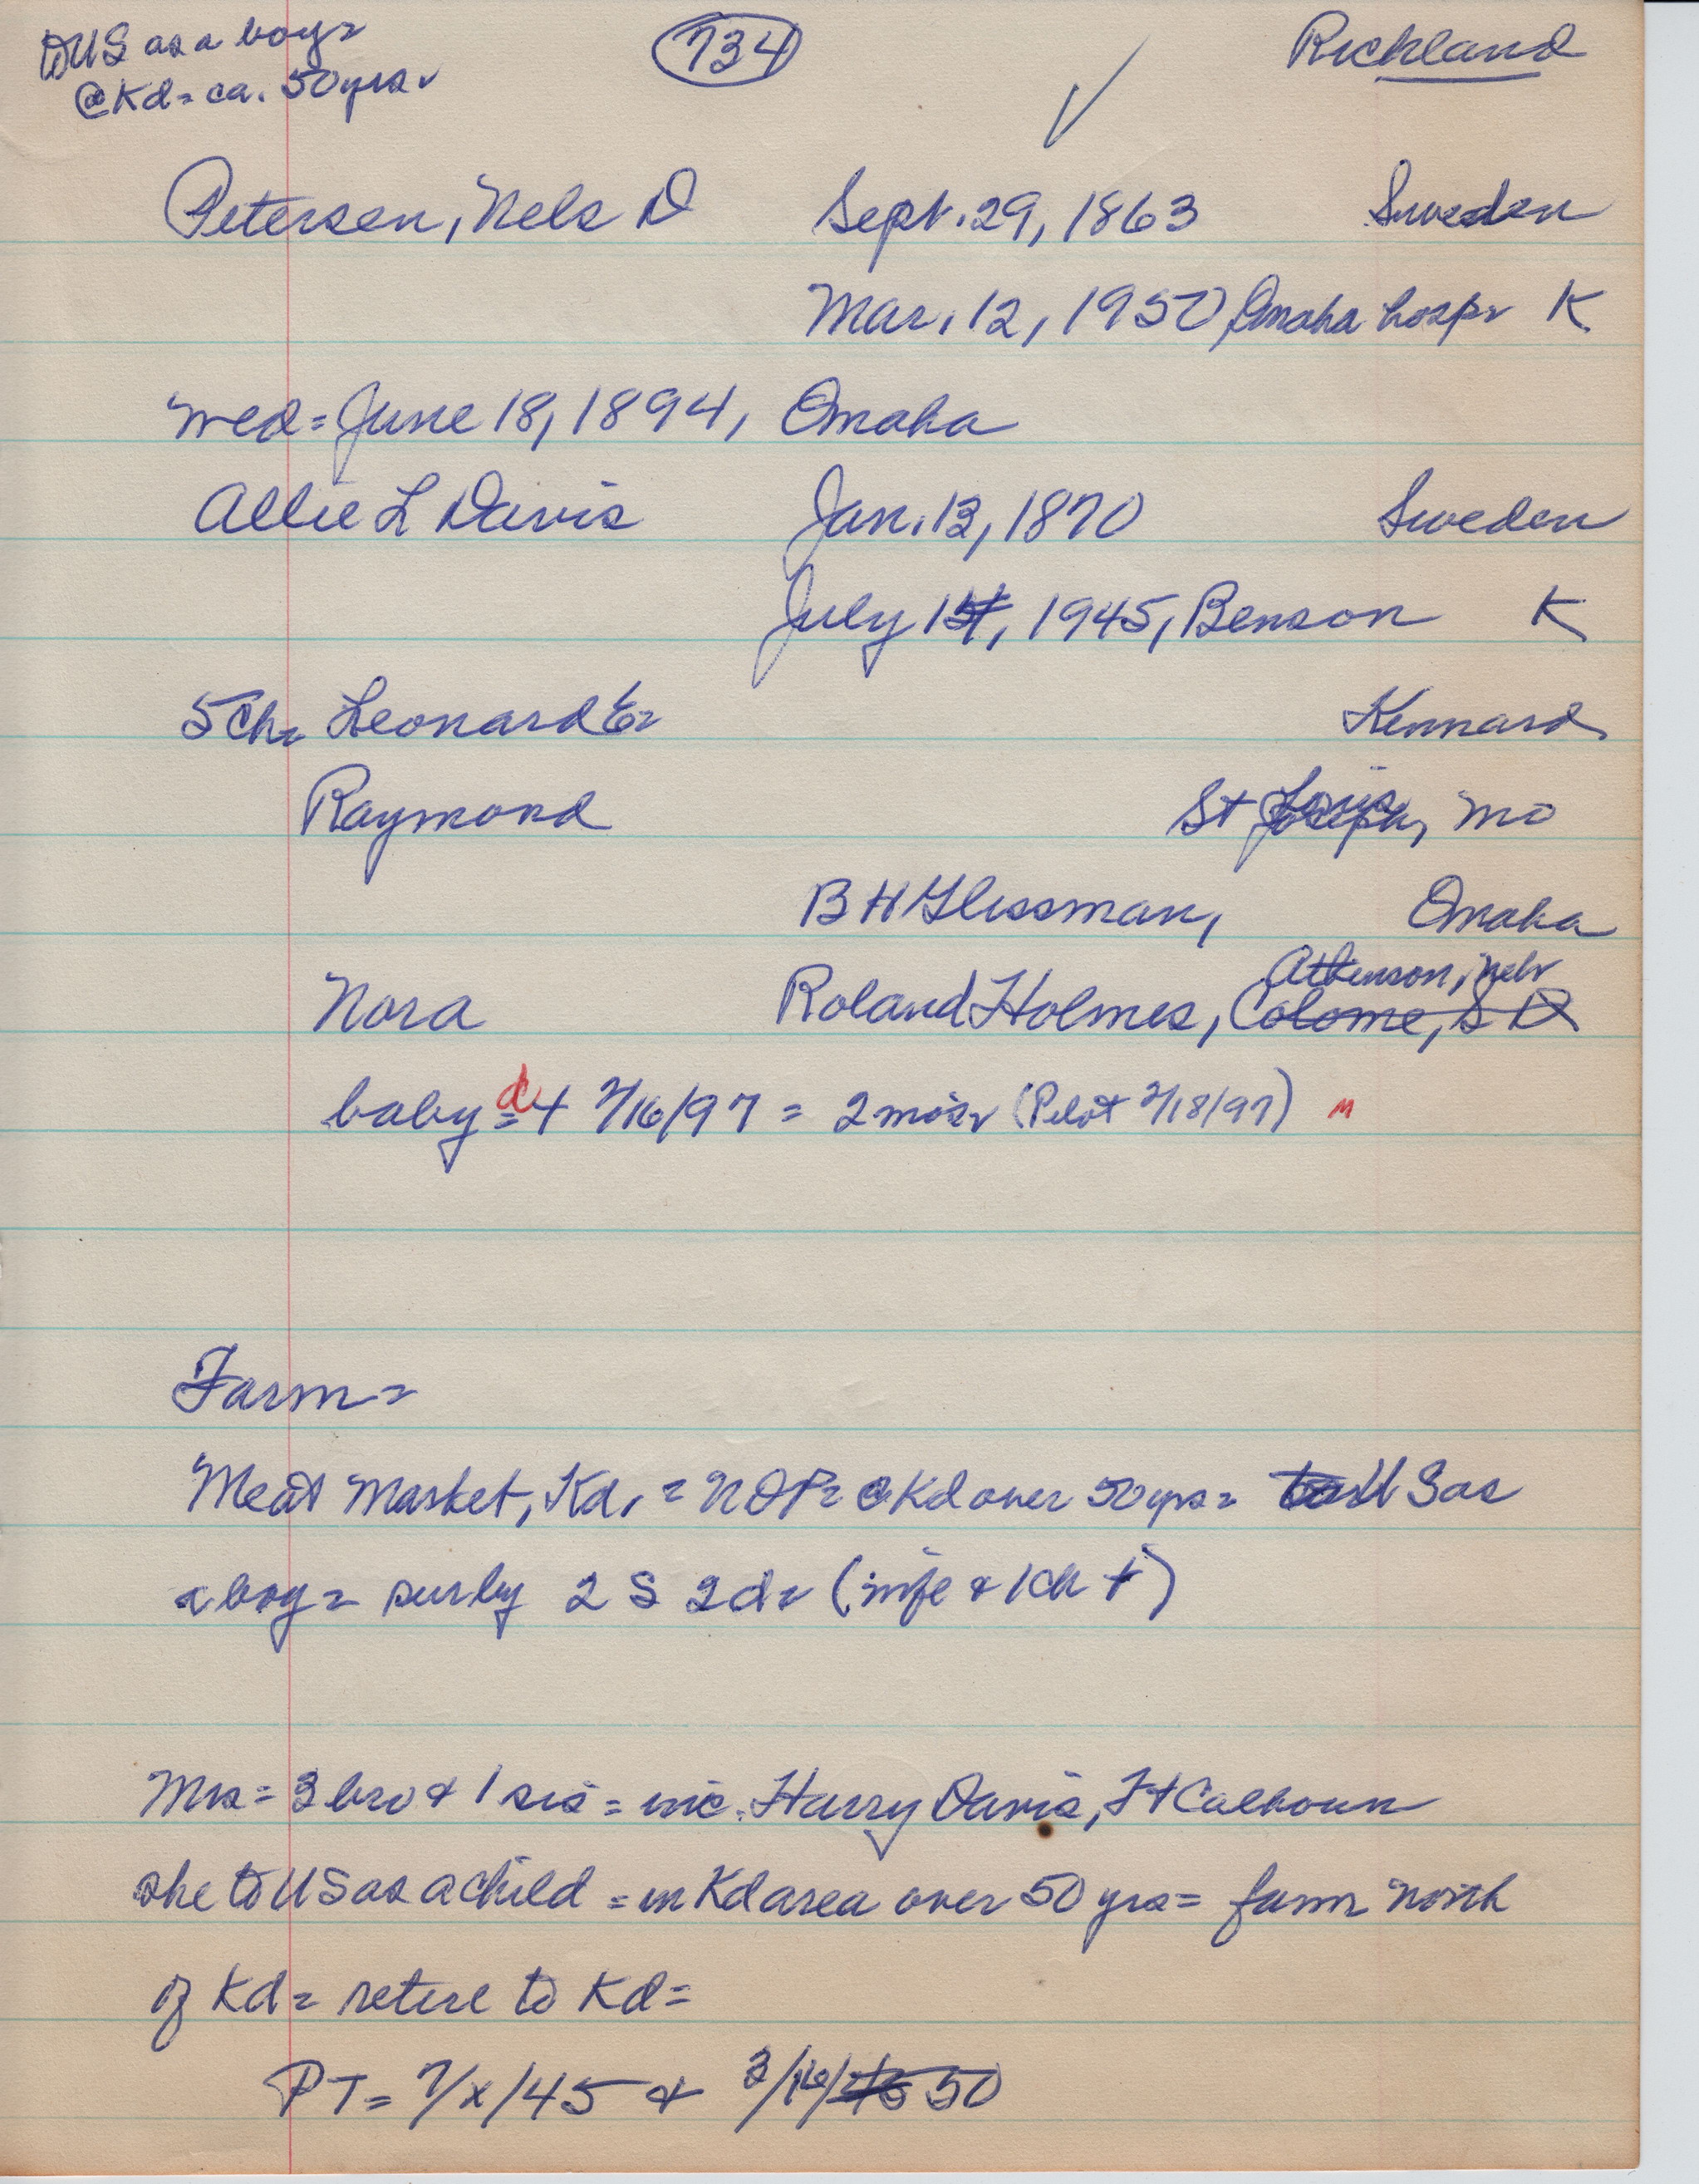 to US as a boy=
@ Kd= ca. 50 yrs.
734
Richland
Petersen, Nels D Sept. 29, 1863 Sweden
Mar. 12, 1950, Omaha hosp. K
wed= June 18, 1894, Omaha
Allie L Davis Jan. 13, 1870 Sweden
July 1, 1945, Benson K
5 ch= Leonard E= Kennard
Raymond St, Mo
B H Glissman, Omaha
Atkinson, Nebr
Nora Roland Holmes, Colome, S D
baby = d 7/16/97 = 2 mos. (Pilot 7/18/97) M
Farm=
Meat Market, Kd. = N D P= @ Kd over 50 yrs= to U S as
a boy= sur by 2 S 2 d= (wife & 1 ch †)
Mrs= 3 bro & 1 sis = inc. Harry Davis, Ft Calhoun
she to U S as a child = in Kd area over 50 yrs= farm north
of Kd= retire to Kd=
PT= 7/x/45 & 3/16/50